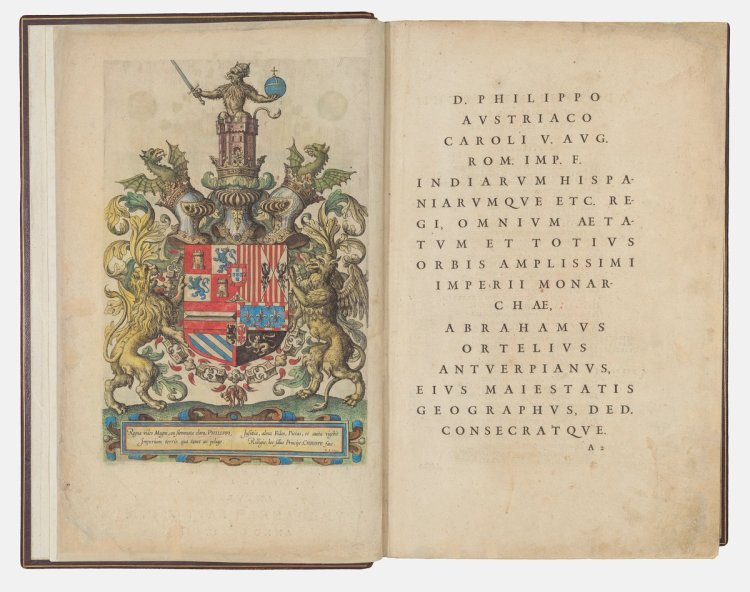 Regna vides Magni, en stemmata clara, PHILIPPI,
Imperium terris qui tenet ac pelago
Justitia, alma Fides, Pietas, et auita
Religio, hoc saluo Principe,
D. PHILIPPO
AVSTRIACO
CAROLI V. AVG.
ROM. IMP. F.
INDIARVM HISPA-
NIARVMQVE ETC. RE-
GI, OMNIVM AETA-
TVM ET TOTIVS
ORBIS AMPLISSIMI
IMPERII MONAR-
CHAE,
ABRAHAMVS
ORTELIVS
ANTVERPIANVS,
EIVS MAIESTATIS
GEOGRAPHVS, DED.
CONSECRATQVE.
A 2